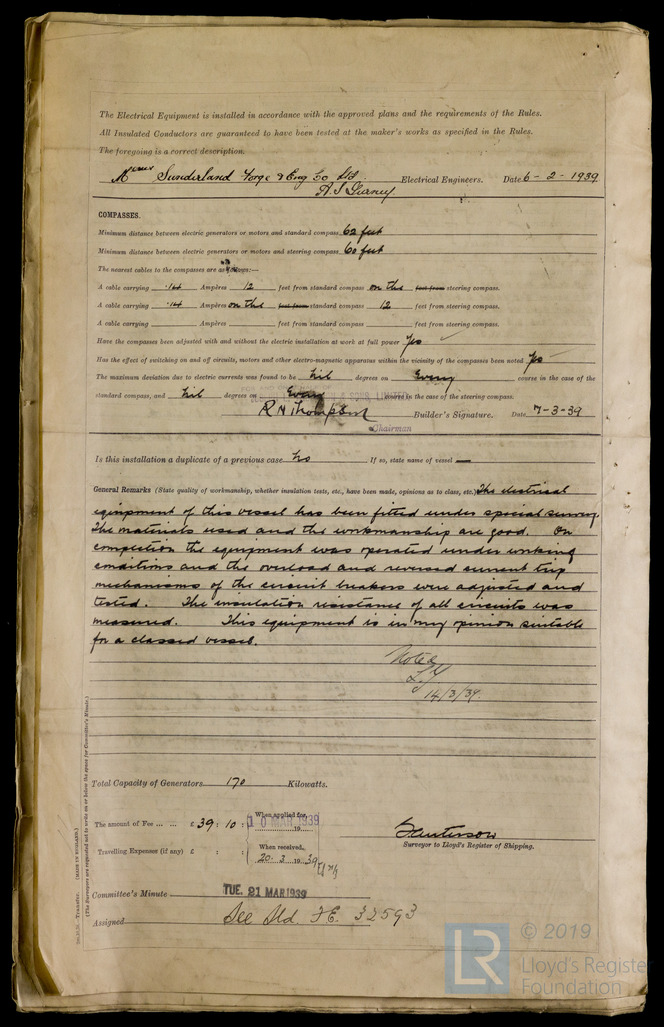 The Electrical Equipment is installed in accordance with the approved plans and the requirements of the Rules.
All Insulated Conductors are guaranteed to have been tested at the maker's works as specified in the Rules.
The foregoing is a correct description.
Messrs Sunderland Forge & Eng Co Ltd. Electrical Engineers. Date 6-2-1939
COMPASSES.
Minimum distance between electric generators or motors and standard compass 62 feet
Minimum distance between electric generators or motors and steering compass 60 feet
The nearest cables to the compasses are as follows:—
A cable carrying .14 Ampères 12 feet from standard compass on the feet from steering compass.
A cable carrying .14 Ampères on the feet from standard compass 12 feet from steering compass.
A cable carrying Ampères feet from standard compass feet from steering compass.
Have the compasses been adjusted with and without the electric installation at work at full power Yes
Has the effect of switching on and off circuits, motors and other electro-magnetic apparatus within the vicinity of the compasses been noted Yes
The maximum deviation due to electric currents was found to be Nil degrees on Every course in the case of the
standard compass, and Nil degrees on Every course in the case of the steering compass.
R N Thompson Builder's Signature. Date 7-3-39
Chairman
Is this installation a duplicate of a previous case No If so, state name of vessel —
General Remarks (State quality of workmanship, whether insulation tests, etc., have been made, opinions as to class, etc.) The electrical
equipment of this vessel has been fitted under special survey.
The materials used and the workmanship are good. On
completion the equipment was operated under working
conditions and the overload and reversed current trip
mechanisms of the circuit breakers were adjusted and
tested. The insulation resistance of all circuits was
measured. This equipment is in my opinion suitable
for a classed vessel.
Noted
14/3/39.
Total Capacity of Generators 170 Kilowatts.
The amount of Fee ... ... £ 39 : 10 : When applied for, 10 MAR 1939
19
Surveyor to Lloyd's Register of Shipping.
Travelling Expenses (if any) £ : : When received, 20.3.1939
Committee's Minute TUE. 21 MAR 1939
Assigned See Sld. F.E. 32593
(MADE IN ENGLAND.)
(The Surveyors are requested not to write on or below the space for Committee's Minute.)
LR
© 2019
Lloyd's Register
Foundation